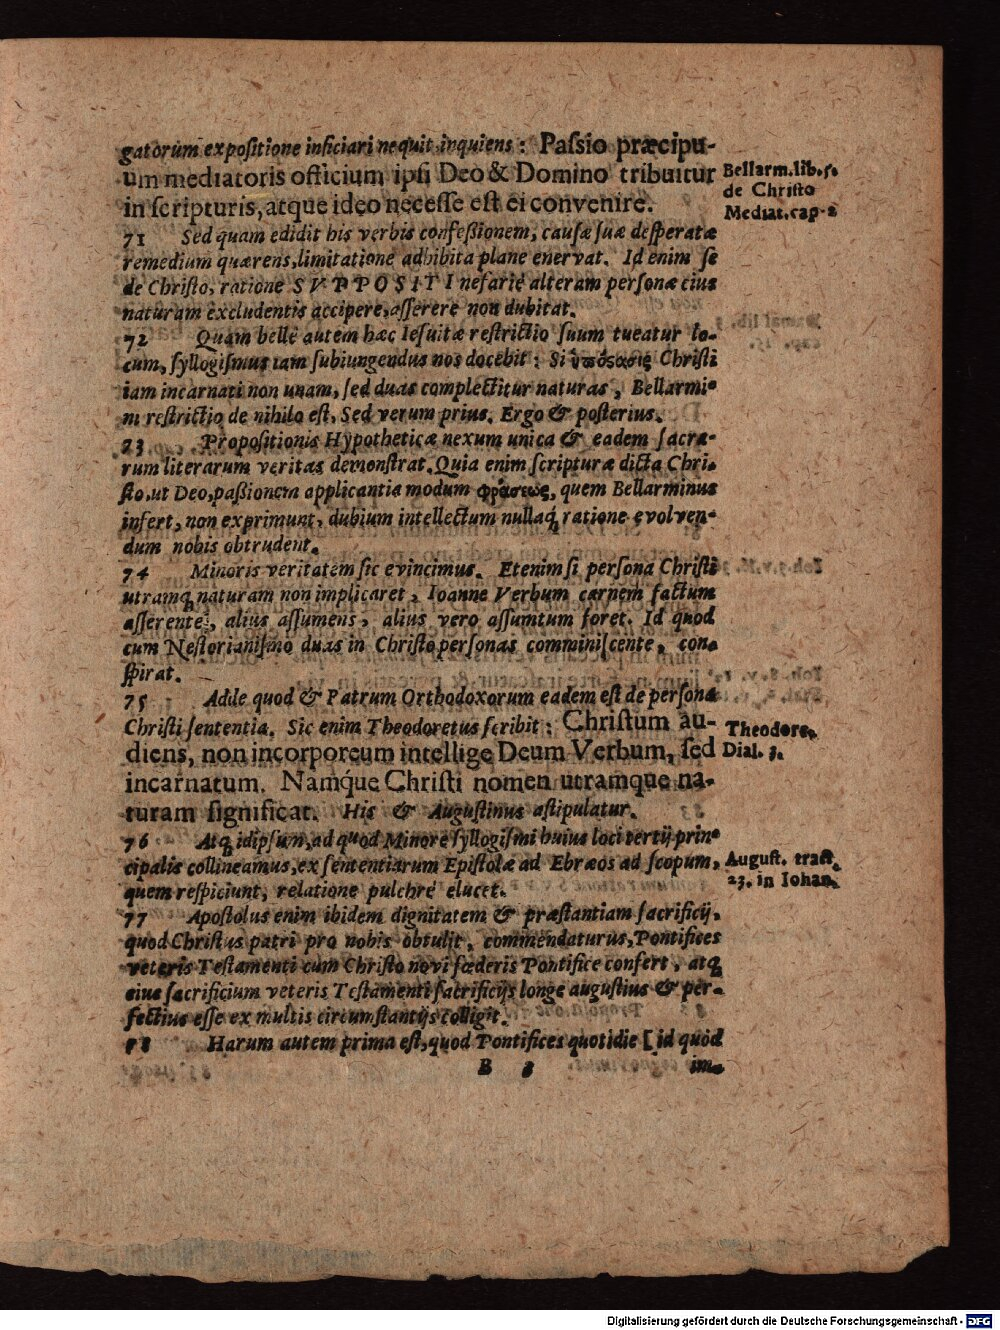 gatorum expositione inficiari nequit inquiens: Passio præcipu-
um mediatoris officium ipsi Deo & Domino tribuitur
in scripturis, atque ideo necesse est ei convenire.
Bellarm. lib. 5.
de Christo
Mediat. cap. 2
71 Sed quam edidit his verbis confeßionem, causæ suæ desperatæ
remedium quærens, limitatione adhibita plane enervat. Id enim se
de Christo, ratione SVPPOSITI nefariè alteram personæ eius
naturam excludentis accipere, asserere non dubitat.
72 Quam bellè autem hæc Iesuitæ restrictio suum tueatur lo-
cum, syllogismus iam subiungendus nos docebit: Si ὑπόστασις Christi
iam incarnati non unam, sed duas complectitur naturas, Bellarmi-
ni restrictio de nihilo est, Sed verum prius. Ergo & posterius.
73 Propositionis Hypotheticæ nexum unica & eadem sacra-
rum literarum veritas demonstrat. Quia enim scripturæ dicta Chri-
sto, ut Deo, paßionem applicantia modum φράσεως, quem Bellarminus
infert, non exprimunt, dubium intellectum nullaq; ratione evolven-
dum nobis obtrudent.
74 Minoris veritatem sic evincimus. Etenim si persona Christi
utramq; naturam non implicaret, Ioanne Verbum carnem factum
asserente, alius assumens, alius vero assumtum foret. Id quod
cum Nestorianismo duas in Christo personas comminiscente, con-
spirat.
75 Adde quod & Patrum Orthodoxorum eadem est de persona
Christi sententia. Sic enim Theodoretus scribit: Christum au-
diens, non incorporeum intellige Deum Verbum, sed
incarnatum. Namque Christi nomen utramque na-
turam significat. His & Augustinus astipulatur.
Theodore.
Dial. 3.
76 Atq; idipsum, ad quod Minore syllogismi huius loci tertij prin-
cipalis collineamus, ex sententiarum Epistolæ ad Ebræos ad scopum,
quem respiciunt, relatione pulchrè elucet.
August. tract.
23. in Iohan.
77 Apostolus enim ibidem dignitatem & præstantiam sacrificij,
quod Christus patri pro nobis obtulit, commendaturus, Pontifices
veteris Testamenti cum Christo novi fœderis Pontifice confert, atq;
eius sacrificium veteris Testamenti sacrificijs longe augustius & per-
fectius esse ex multis circumstantijs colligit.
78 Harum autem prima est, quod Pontifices quotidie [id quod
B 3 im-
Digitalisierung gefördert durch die Deutsche Forschungsgemeinschaft - DFG